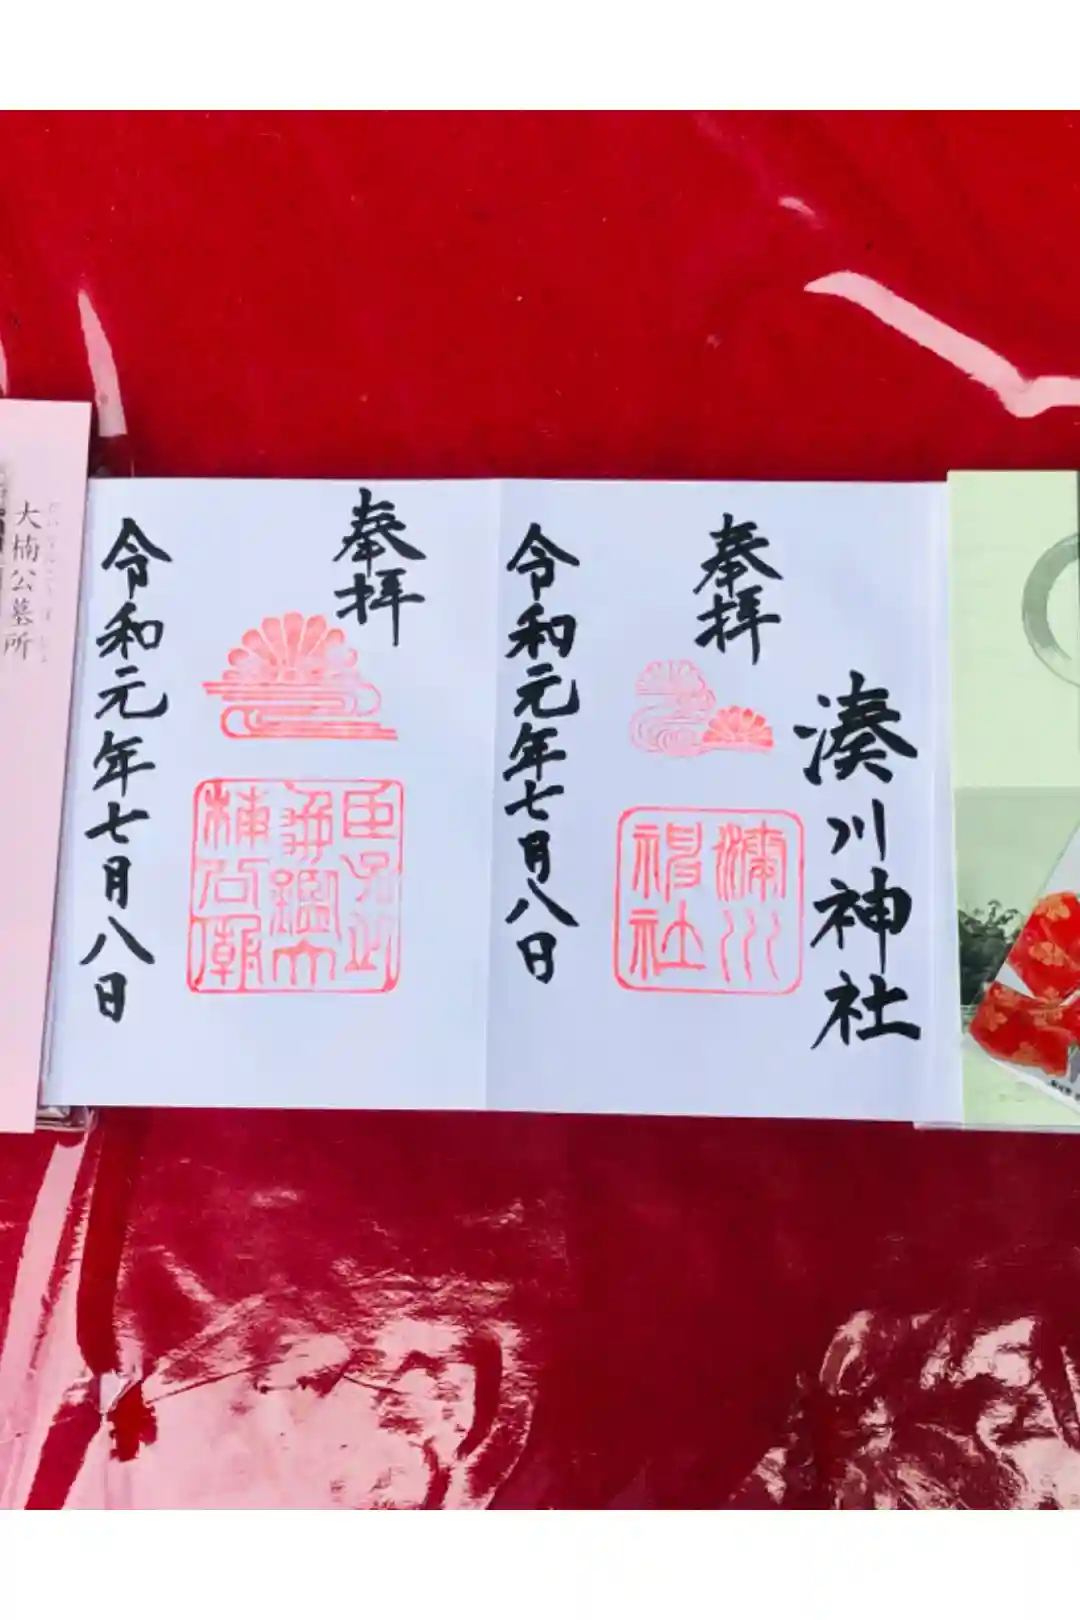 奉拝
湊川神社
湊川
神社
令和元年七月八日
奉拝
令和元年七月八日
大楠公墓所